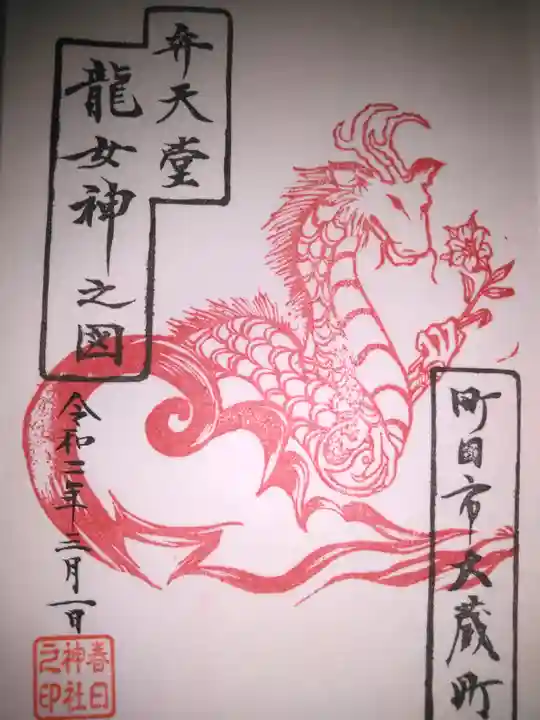 弁天堂
龍女神之図
令和二年三月一日
春日
神社
之印
町田市大蔵町